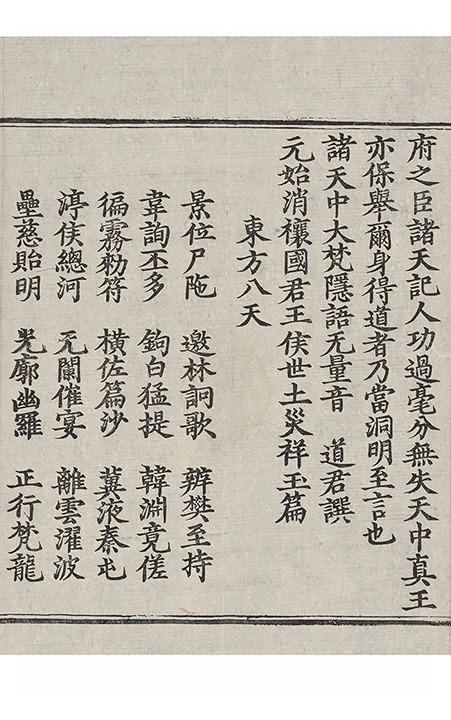 府之臣諸天記人功過毫分無失天中真王
亦保舉爾身得道者乃當洞明至言也
諸天中大梵隱語无量音　道君譔
元始消穰國君王侯世土災祥玉篇
東方八天
景位尸陁　遨林詗歌　辨樊至持
韋詢丕多　鉤白猛提　韓淵竟傞
徧霧勑符　橫佐篇沙　蓂液秦屯
渟侯總河　无闌催宴　離雲濯波
壘慈貽明　光廓幽羅　正行梵龍